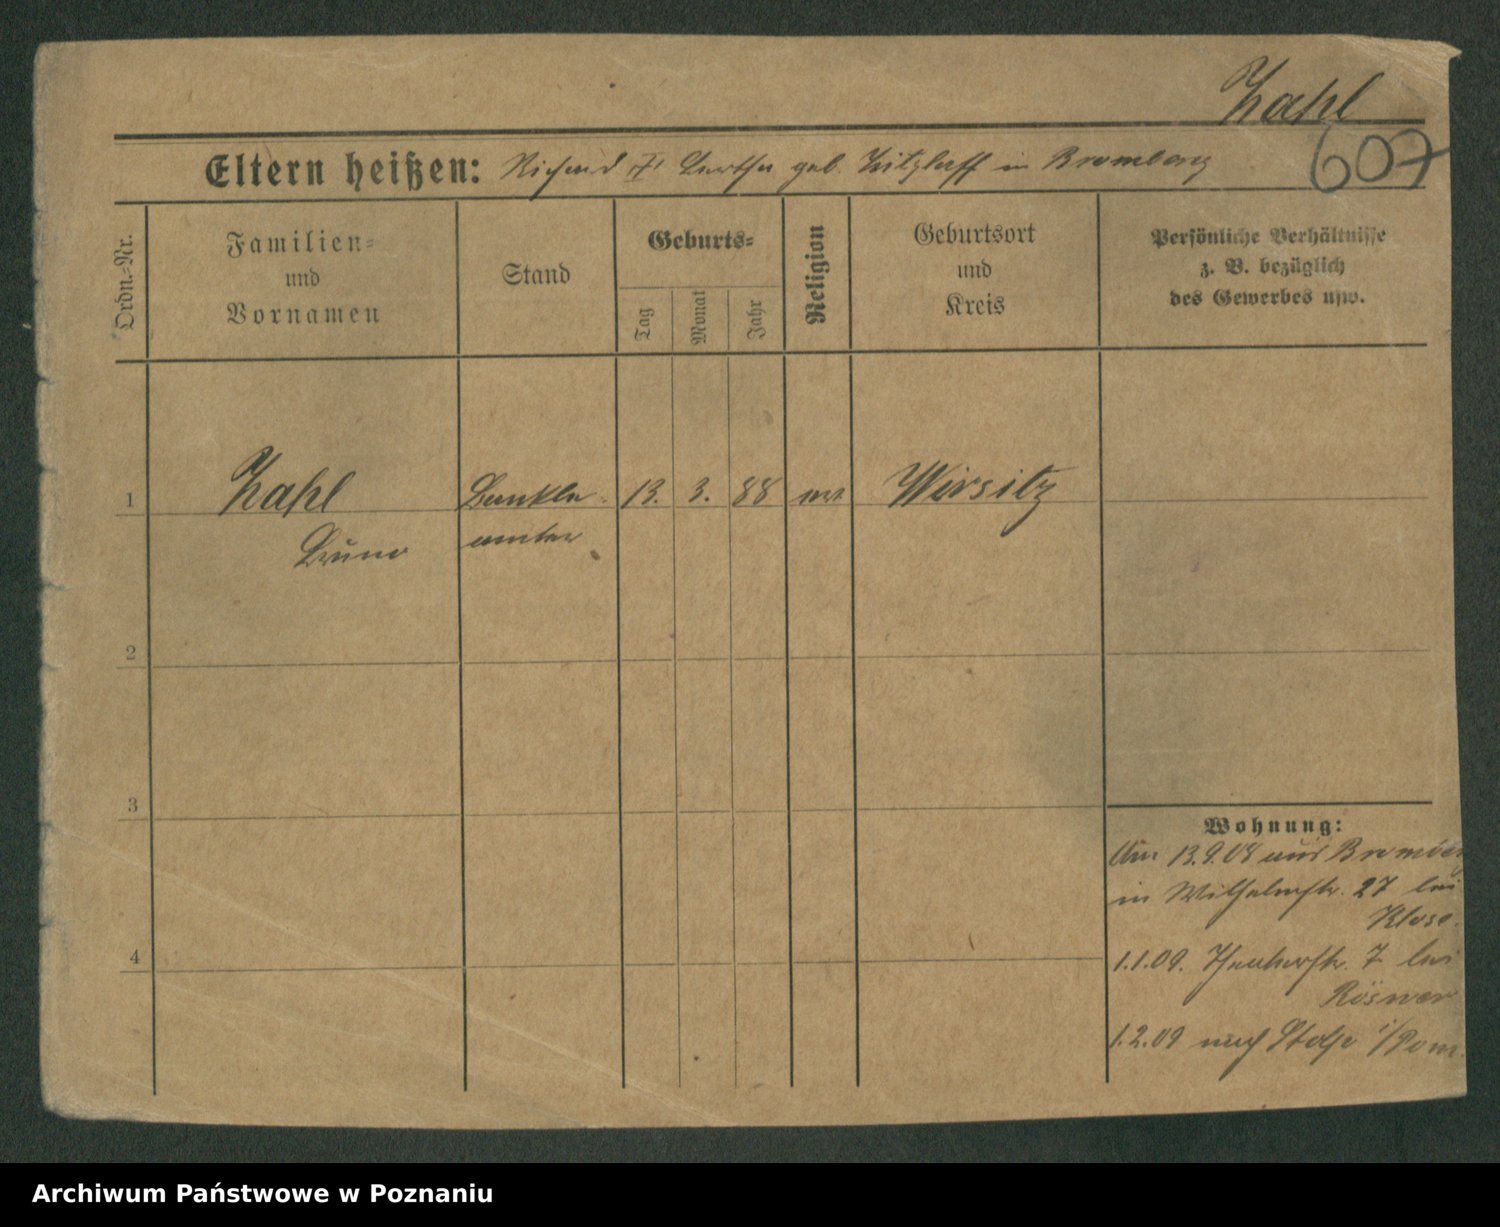 Zahl
607
Eltern heißen: Richard u. Bertha geb. in Bromberg
Ordn.=Nr.
Familien=
und
Vornamen
Stand
Geburts=
Tag
Monat
Jahr
Religion
Geburtsort
und
Kreis
Persönliche Verhältnisse
z. B. bezüglich
des Gewerbes usw.
1 Zahl Bankbe= 13. 3. 88 Wirsitz
Bruno amter
2
3
4
Wohnung:
13.9.08 aus Bromberg
in Wilhelmstr. 27 bei
Klose.
1.1.09. Theaterstr. 7 bei
Rösner
1.2.09 nach Stolp i/Pom.
Archiwum Państwowe w Poznaniu